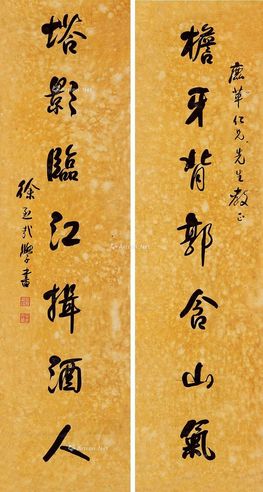 檐牙背郭含山氣
廉華仁兄先生教正
塔影臨江揖酒人
徐
書